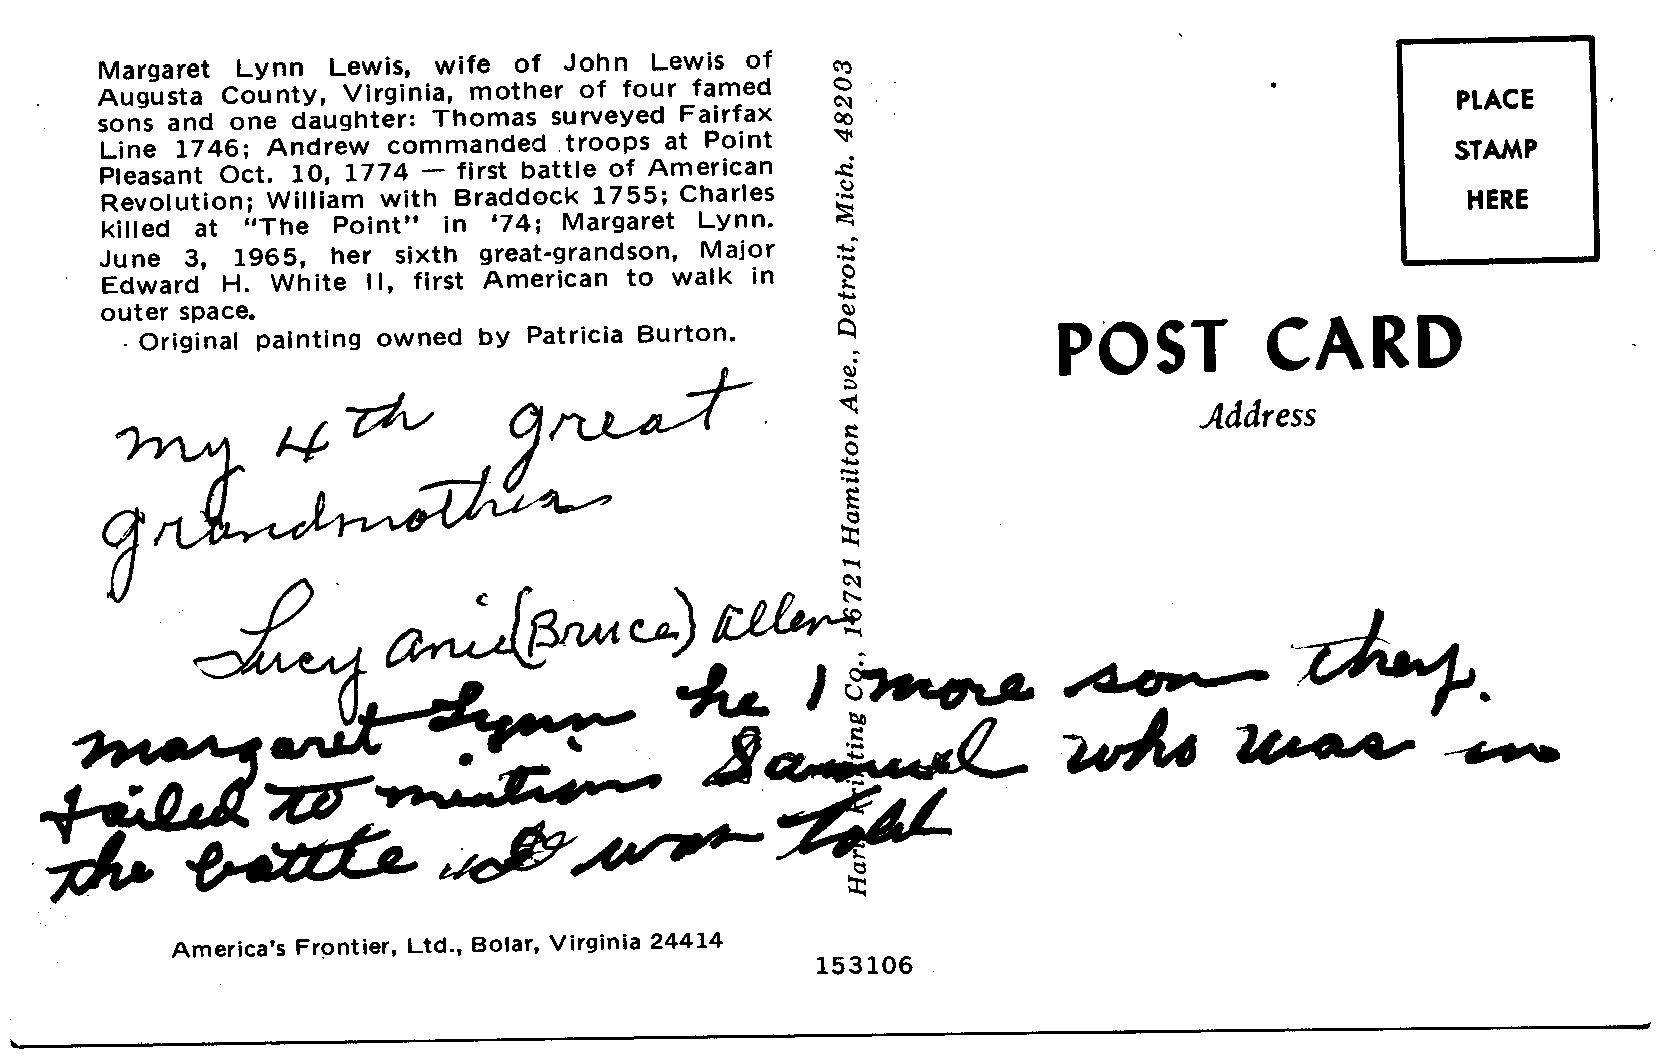 Margaret Lynn Lewis, wife of John Lewis of
Augusta County, Virginia, mother of four famed
sons and one daughter: Thomas surveyed Fairfax
Line 1746; Andrew commanded troops at Point
Pleasant Oct. 10, 1774 — first battle of American
Revolution; William with Braddock 1755; Charles
killed at "The Point" in '74; Margaret Lynn.
June 3, 1965, her sixth great-grandson, Major
Edward H. White II, first American to walk in
outer space.
Original painting owned by Patricia Burton.
my 4th great
grandmother
Lucy Anie (Bruce) Allen
Margaret Lynn he 1 more son they
failed to mention Samuel who was in
the battle I was told
America's Frontier, Ltd., Bolar, Virginia 24414
153106
Printing Co., 16721 Hamilton Ave., Detroit, Mich. 48203
PLACE
STAMP
HERE
POST CARD
Address